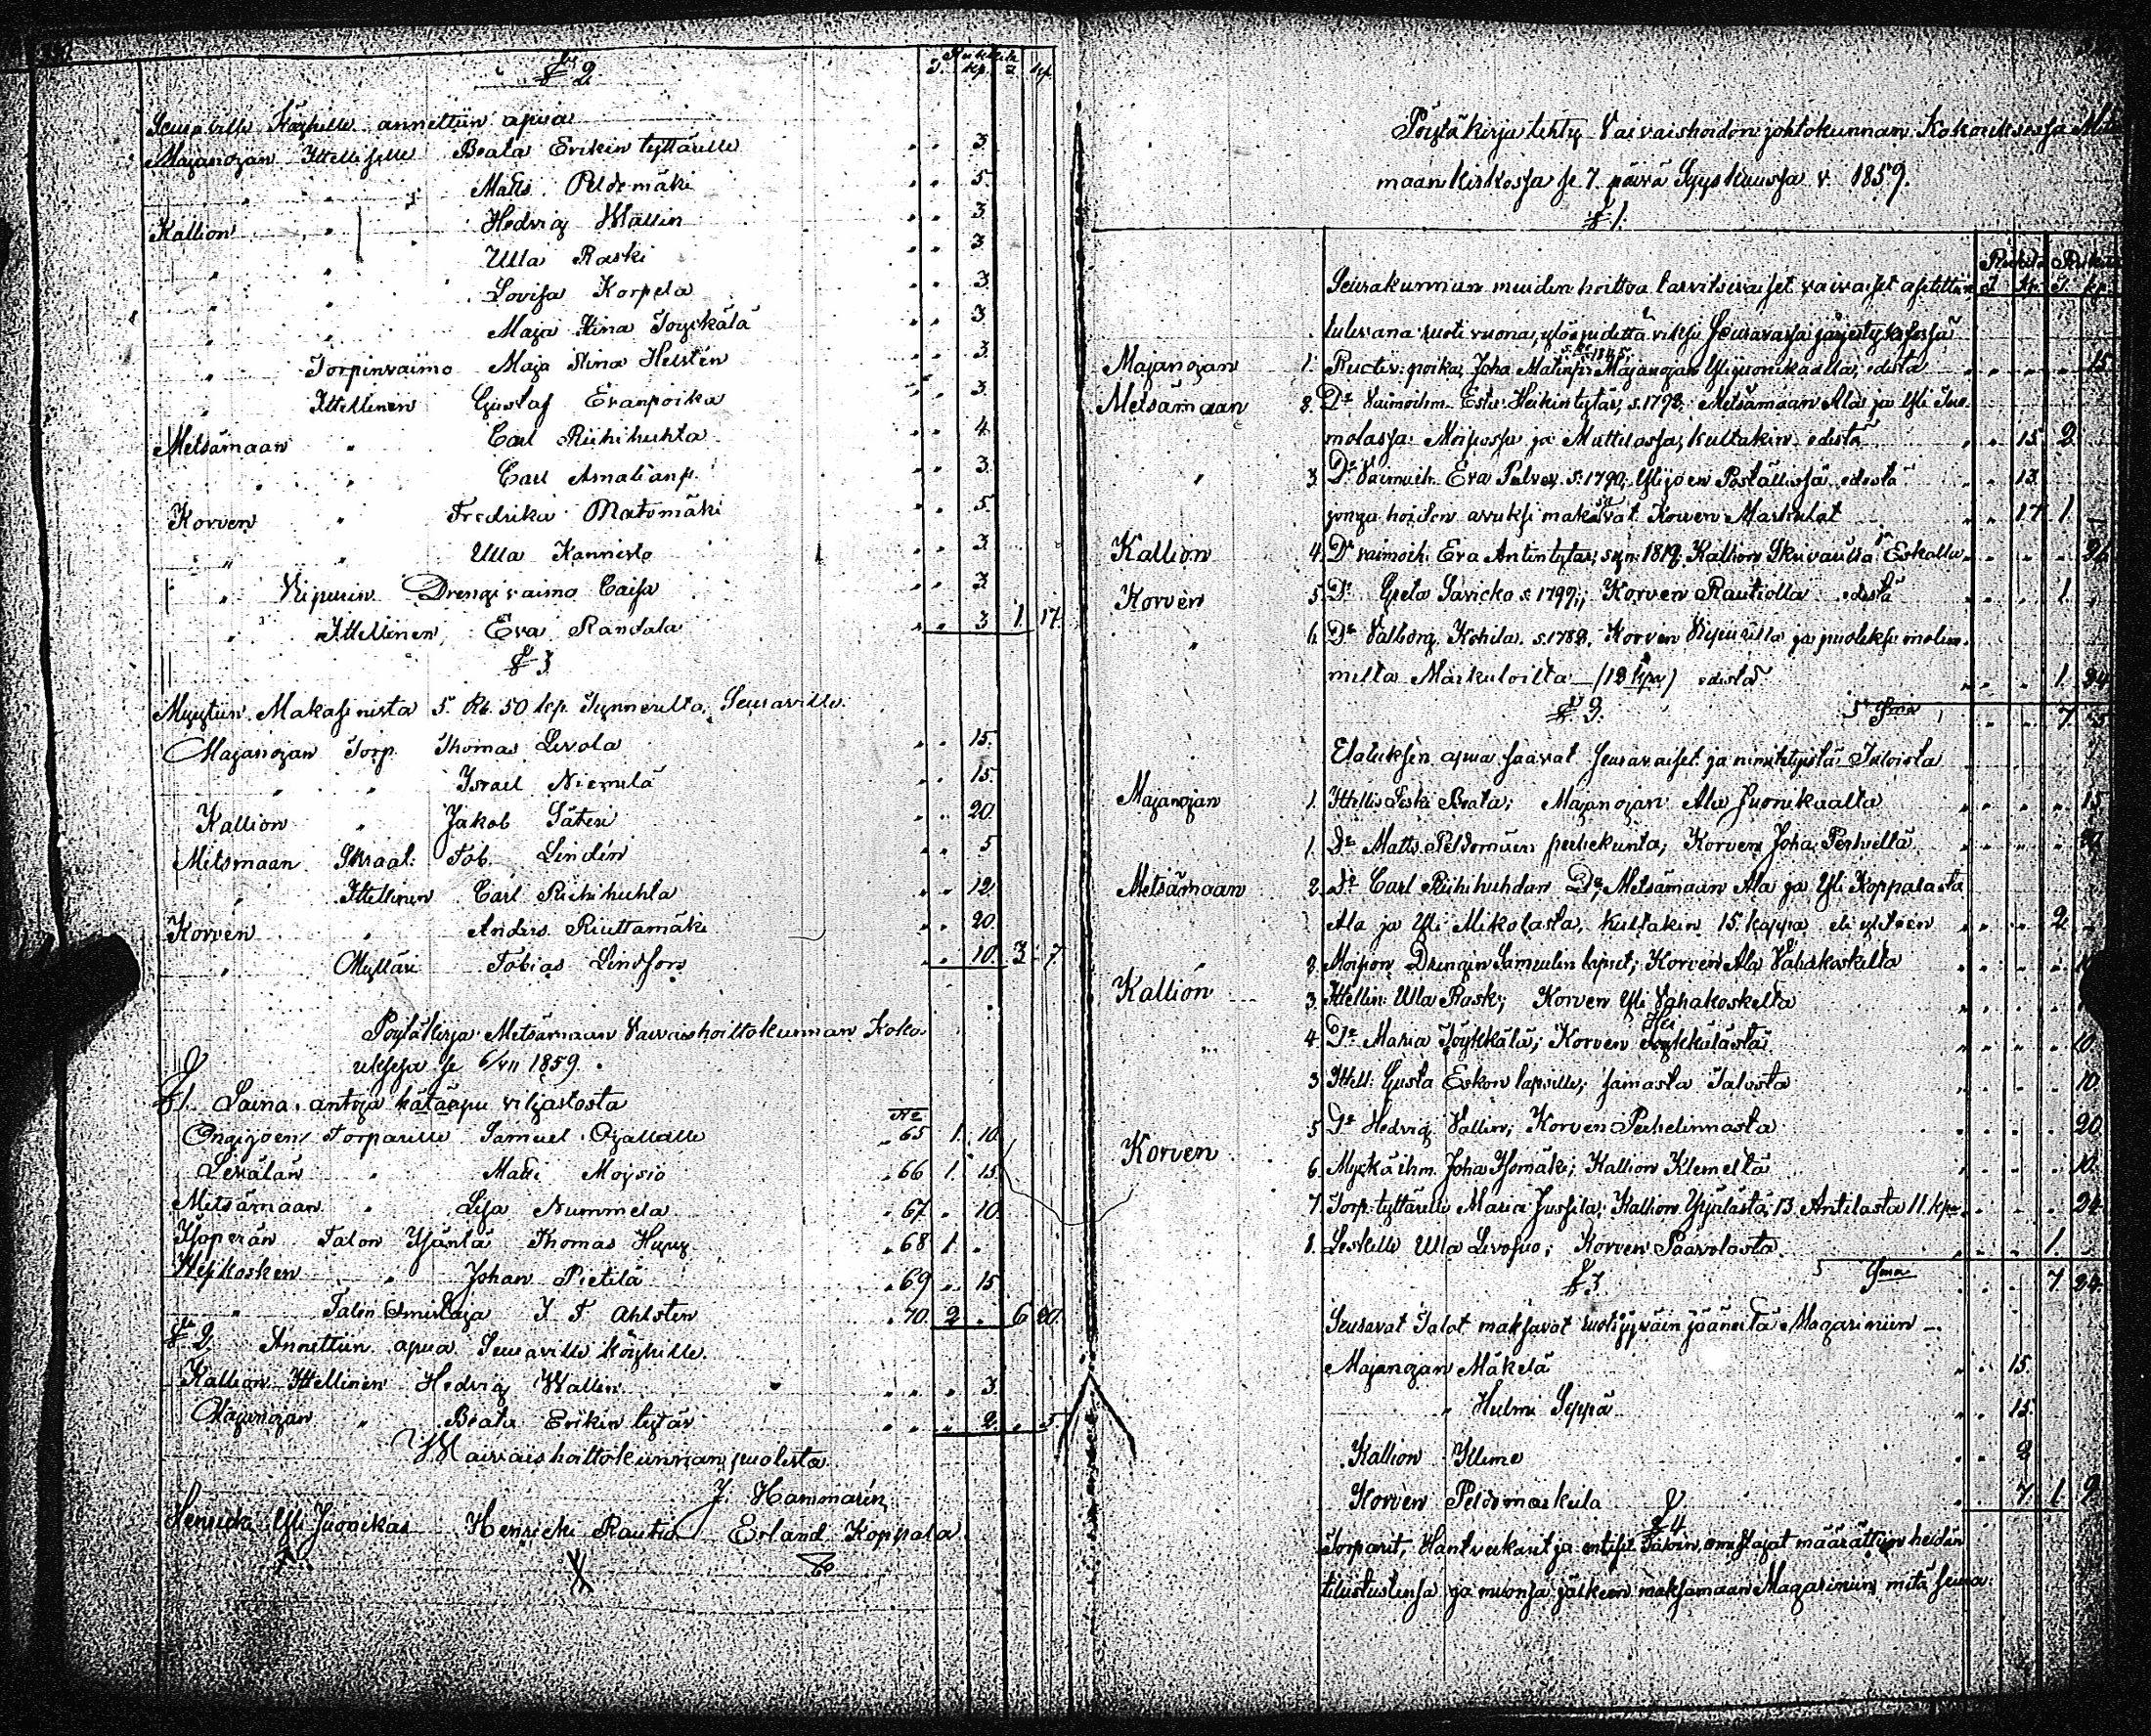 § 2
Rukkiita
T. kp. T. kp.
Seuraville Köyhille annettiin apua
Majanojan Ittellifelle Beata Erikin tyttärelle " " 3
" " Matts Peldomäki " " 5.
Kallion " Hedvig Wallin " " 3
" " Ulla Raski " " 3
" " Lovisa Korpela " " 3
" " Maja Stina Töykälä " " 3
" Torpinvaimo Maja Stina Helstén " " 3.
" Ittellinen Gustaf Evanpoika " " 3.
Metsämaan " Carl Riihihuhta " " 4
" " Carl " " 3.
Korven " Fredrika Matomäki " " 5
" " Ulla Kannisto " " 3
" Vipurin Drengivaimo Caisa " " 3
" Ittellinen, Eva Randala " " 3 1 17
§ 3
Myytiin Makasinista 5. Rb. 50 kp. Tynneriltä, Seuraville
Majanojan Torp. Thomas Levola " " 15.
" " Israel Niemelä " " 15
Kallion " Jakob Säteri " " 20
Metsmaan Skraat: Tob. Lindén " " 5
" Ittellinen Carl Riihihuhta " " 12
Korven " Anders Riuttamäki " " 20
" Mylläri Tobias Lindfors " " 10. 3 7
Pöytäkirja Metsämaan Vaivaishoittokunnan Koko-
uksessa se 6/VII 1859.
§ 1. Laina antoja hätäapu viljastosta
No
Ongijoen Torparille Samuel Ojallalle " 65 1. 10.
Levälän " Matti Moisio " 66 1. 15.
Metsämaan " Lisa Nummela " 67 " 10.
Isoperän Talon Isäntä Thomas Hyyry " 68 1. "
Ylejkosken " Johan Pietilä " 69 " 15
" Talon Omistaja J. F. Ahlsten " 70. 2 " 6 20.
§ 2. Annettiin apua Seuraville köyhille.
Kallion Ittellinen Hedvig Wallin " " " 3.
Majanojan " Beata Erikin tytär " " " 2. " 5
Waivaishoittokunnan puolesta
J. Hammarén
Henricki Yli Juonikas Henricki Rautio Erland Koppala
Pöytäkirja tehty Vaivaishoidon johtokunnan Kokouksessa
maan kirkossa se 7. päivä Syyskuussa v. 1859.
§ 1.
Seurakunnan muiden hoittoa tarvitsevaiset vaivaiset asitettiin T. kp. T. kp.
tulevana ruoti vuona, Seuravassa järjestyksessä
Majanojan 1. Ructiv. poika, Joha Matinp. s. 1845; Majanojan Ylijuonikaalla, edestä " " " 15
Metsämaan 2. Do Vaimoihm. Ester Heikintytär, s. 1778; Metsämaan Ala ja Yli Juo-
molassa Moisiossa ja Mattilassa, kultakin edestä " " 15. 2.
" 3. Do Vaimoih. Eva Palver, s. 1790; Ylijoen Poställissä edestä " " 13.
jonga hoidon avuksi maksavat Korven Markulat " " 17 1. "
Kallion 4. Do vaimoih. Eva Antintytär, syn: 1819; Kallion Eskalla " " " 26
Korven 5. Do Greta Savicko s. 1797; Korven Rautiolla edestä " " 1. "
" 6. Do Valborg Kohila. s. 1788, Korven Vipurilla ja puoleksi molem-
milta Markuloilta (12 kpa) edestä " " 1. 24
§ 2. Sma " " 7 5
Elatuksen apua saavat seuraavaiset ja nimitetyistä Taloista
Majanojan 1. Ittellis Leski Beata; Majanojan Ala Juonikaalta " " " 15
1. Do Matts Peldomäen perhekunta; Korven Joha Pertveltä " " " 20
Metsämaan 2. Do Carl Riihihuhdan Do, Metsämaan Ala ja Yli Koppalasta
Ala ja Yli Mikolasta, kultakin 15 kappa eli yhteen " " 2 "
" 2. Moision Drengin Samuelin lapset; Korven Ala Vahakoskelta " " "
Kallion 3. Ittellin: Ulla Rask; Korven Yli Vahakoskelta " " "
" 4. Do Maria Töykkälä; Korven Töykkälästä " " " 10
3. Ittell: Gusta Eskon lapsille; samasta Talosta " " " 10.
5. Do Hedvig Vallin; Korven Perhelinnasta " " " 20
Korven 6. Myckä ihm. Joha Isomäki; Kallion Klemelta " " " 10.
7. Torp. tyttärelle Maria Jussila; Kallion Yrjälästä, 13. Antilasta 11. kpa " " " 24
8. Leskelle Ulla Levosuo; Korven Paavolasta " " 1. "
§ 3 Sma " " 7 24
Seuravat Talot maksavat ruotijyväin jääneitä Magasiniin
Majanojan Mäkelä " " 15.
" Hulmi Seppä " " 15.
Kallion Klime " " 2
Korven Peldomarkula " " 7 1. 9
§ 4
Torparit, Hantverkarit ja entiset Talon omistajat määrättiin heidän
tilustustensa ja muonsa jälkeen maksamaan Magasiniin mitä seura-